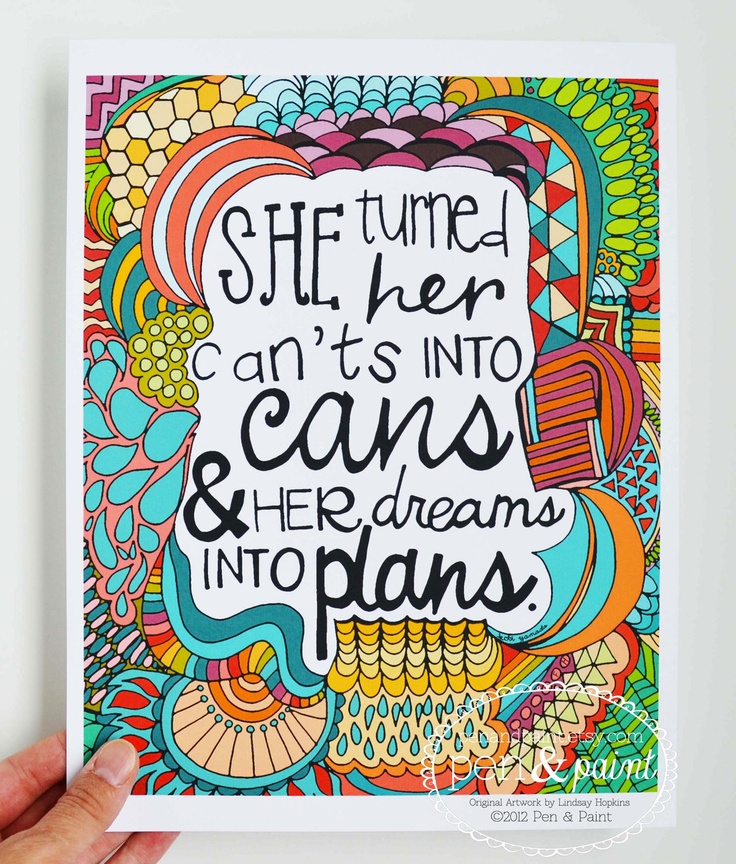 SHE turned
her
can'ts INTO
cans
& HER dreams
INTO plans.
kobi yamada
penandpaint.etsy.com
pen & paint
Original Artwork by Lindsay Hopkins
©2012 Pen & Paint